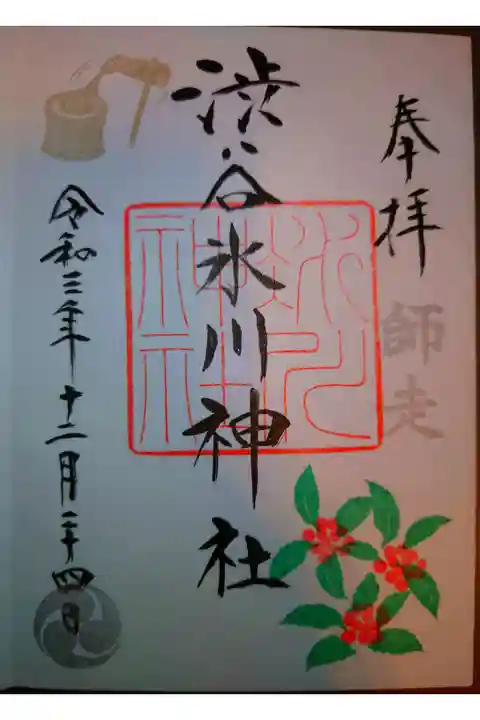 奉拝
師走
渋谷氷川神社
氷川神社
令和三年十二月二十四日